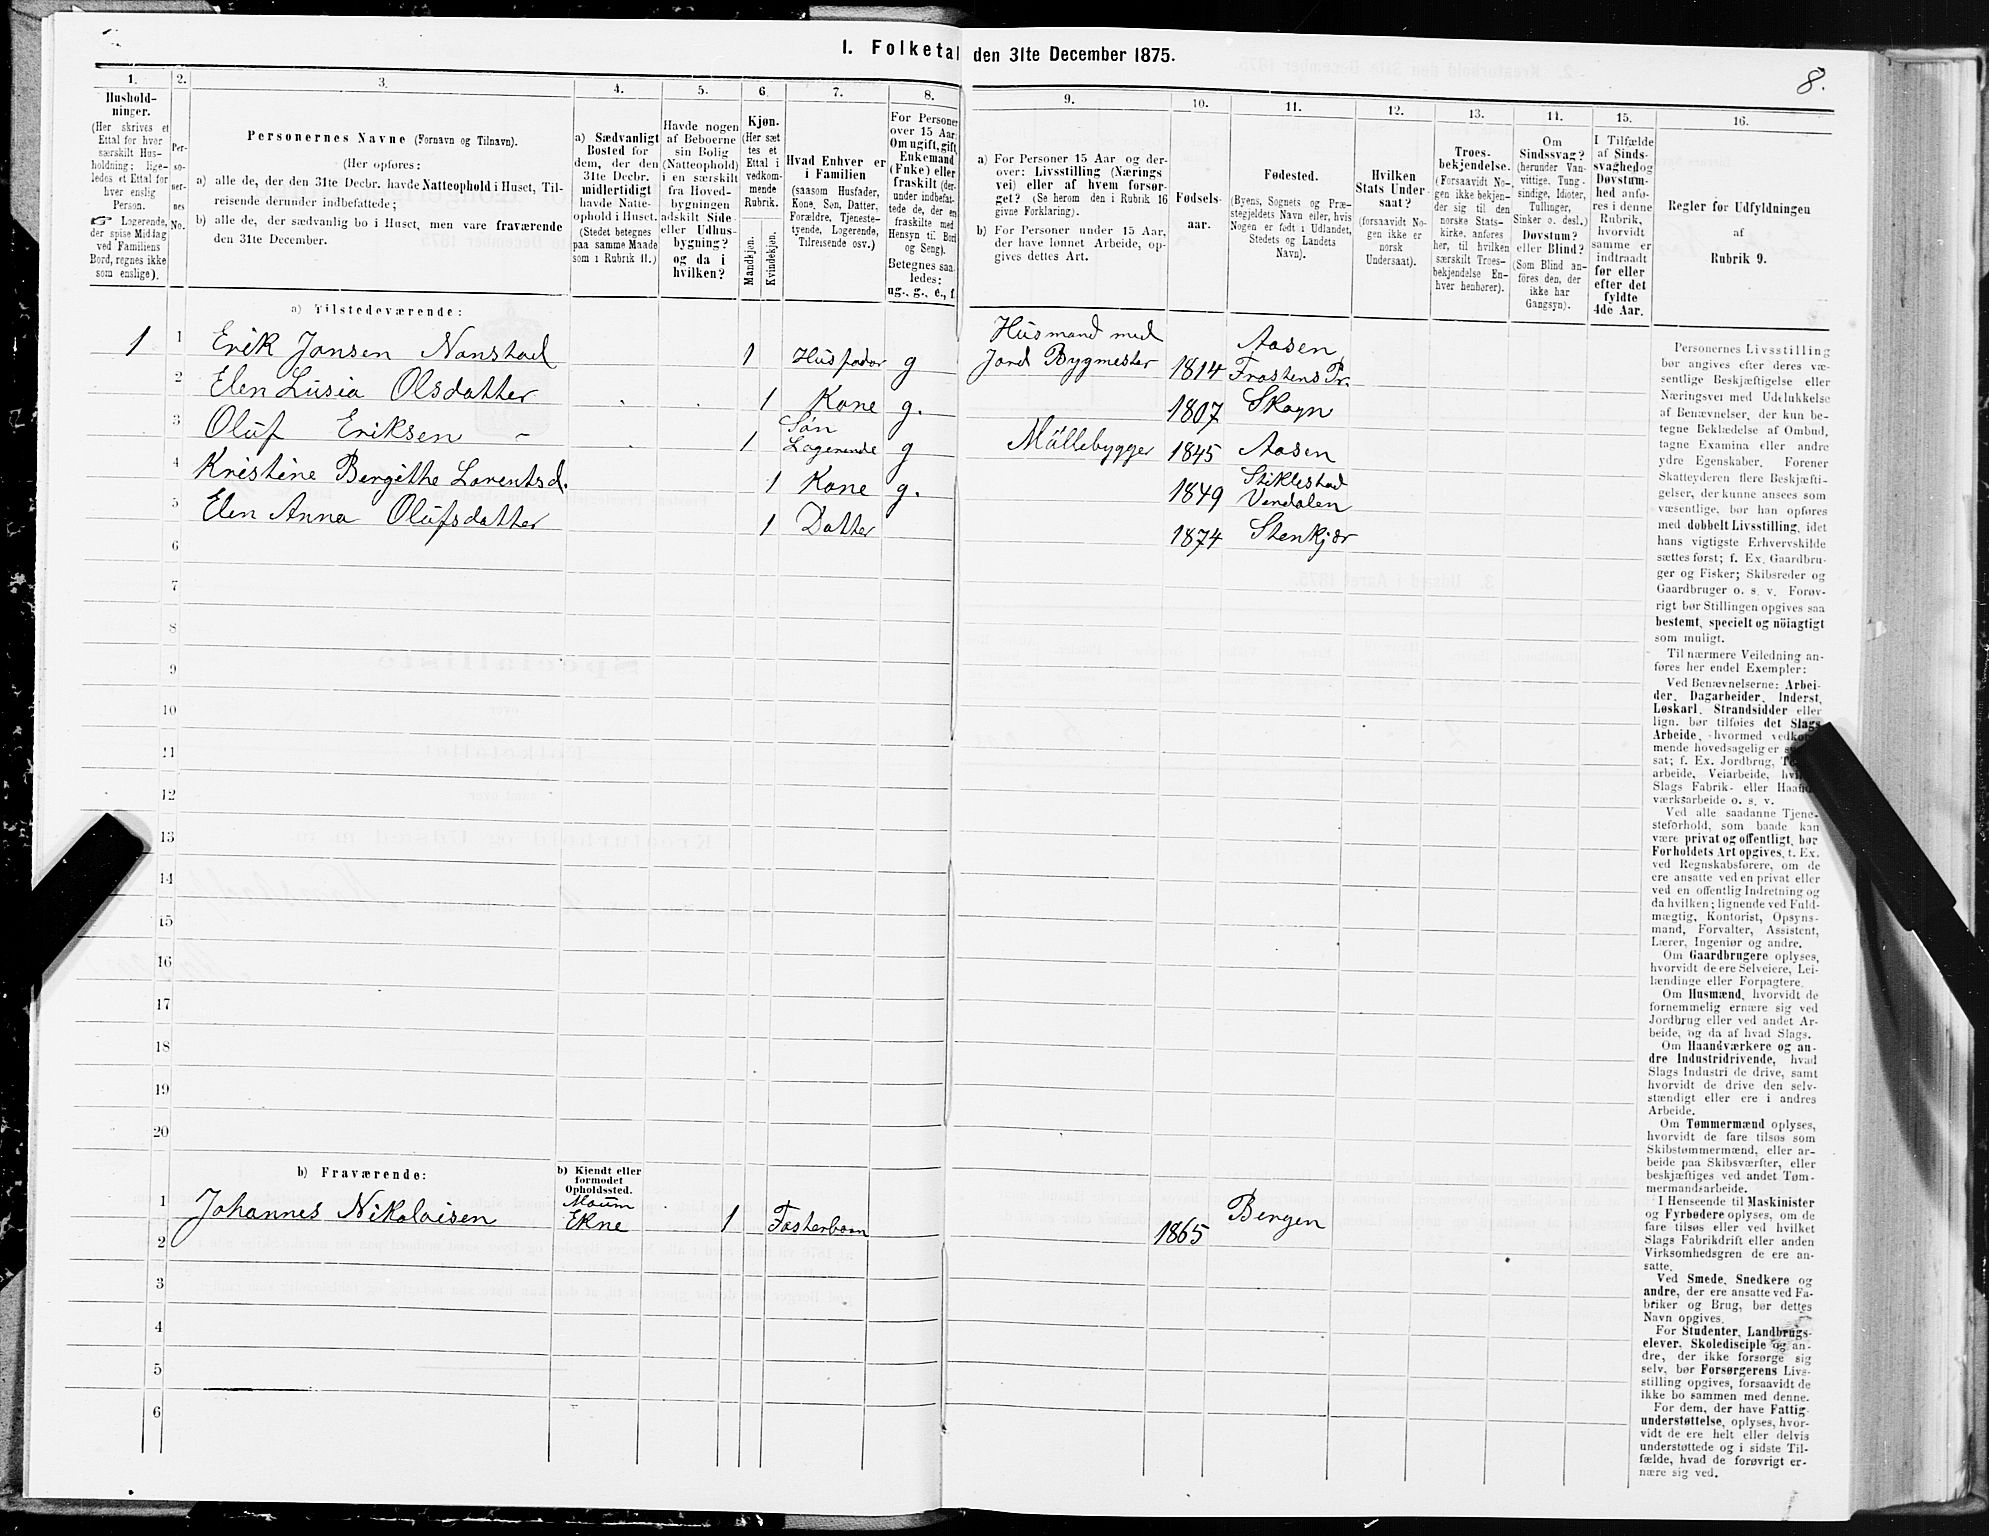 1. Folketal den 31te December 1875.
8.
1.
Hushold-
ninger.
(Her skrives et
Ettal for hver
særskilt Hus-
holdning; lige-
ledes et Ettal for
hver enslig
Person.
Logerende,
der spise Middag
ved Familiens
Bord, regnes ikke
som enslige).
2.
Per-
so-
ner-
nes
No.
3.
Personernes Navne (Fornavn og Tilnavn).
(Her opføres:
a) alle de, der den 31te Decbr. havde Natteophold i Huset, Til-
reisende derunder indbefattede;
b) alle de, der sædvanlig bo i Huset, men vare fraværende
den 31te December.
4.
a) Sædvanligt
Bosted for
dem, der den
31te Decbr.
midlertidigt
havde Natte-
ophold i Huset.
(Stedet betegnes
paa samme Maade
som i Rubrik 11.)
5.
Havde nogen
af Beboerne
sin Bolig
(Natteophold)
i en særskilt
fra Hoved-
bygningen
adskilt Side-
eller Udhus-
bygning?
og da i
hvilken?
6.
Kjøn.
(Her sæt-
tes et
Ettal i
vedkom-
mende
Rubrik.
Mandkjøn.
Kvindekjøn.
7.
Hvad Enhver er
i Familien
(saasom Husfader,
Kone, Søn, Datter,
Forældre, Tjeneste-
tyende, Logerende,
Tilreisende osv.)
8.
For Personer
over 15 Aar:
Om ugift, gift,
Enkemand
(Enke) eller
fraskilt (der-
under indbefat-
tede de, der en
fraskilte med
Hensyn til Bord
og Seng).
Betegnes saa-
ledes:
ug., g., e., f
9.
a) For Personer 15 Aar og der-
over: Livsstilling (Nærings
vei) eller af hvem forsør-
get? (Se herom den i Rubrik 16
givne Forklaring).
b) For Personer under 15 Aar,
der have lønnet Arbeide, op-
gives dettes Art.
10.
Fødsels-
aar.
11.
Fødested.
(Byens, Sognets og Præ-
stegjeldets Navn eller, hvis
Nogen er født i Udlandet,
Stedets og Landets
Navn).
12.
Hvilken
Stats Under-
saat?
(forsaavidt No-
gen ikke er
norsk
Undersaat).
13.
Troes-
bekjendelse.
(Forsaavidt No-
gen ikke bekjen-
der sig til den
norske Stats-
kirke, anføres
her, til hvilken
særskilt Troes-
bekjendelse En-
hver henhører).
14.
Om
Sindssvag?
(herunder Van-
vittige, Tung-
sindige, Idioter,
Tullinger,
Sinker o. desl.)
Døvstum?
eller Blind?
(Som Blind an-
føres den, der
ikke har
Gangsyn).
15.
I Tilfælde
af Sinds-
svaghed og
Døvstum-
hed anfø-
res i denne
Rubrik,
hvorvidt
samme er
indtraadt
før eller
efter det
fyldte
4de Aar.
16.
Regler for Udfyldningen
af
Rubrik 9.
a) Tilstedeværende:
1 1 Erik Jonsen Nonstad 1 Husfader g Husmand med
Jord Bygmester 1814 Aasen
Frostens Pr.
2 Elen Lusia Olsdatter 1 Kone g. 1807 Skogn
3 Oluf Eriksen - 1 Søn
Logerende g Møllebygger 1845 Aasen
4 Kristine Bergithe Lorentsd. 1 Kone g. 1849 Stiklestad
Verdalen
5 Elen Anna Olufsdatter 1 Datter 1874 Stenkjær
6
7
8
9
10
11
12
13
14
15
16
17
18
19
20
b) Fraværende:
b) Kjendt eller
formodet
Opholdssted.
1 Johannes Nikolaisen Ekne 1 Fosterbarn 1865 Bergen
2
3
4
5
6
Personernes Livsstilling
bør angives efter deres væ-
sentlige Beskjæftigelse eller
Næringsvei med Udelukkelse
af Benævnelser, der kun be-
tegne Beklædelse af Ombud,
tagne Examina eller andre
ydre Egenskaber. Forener
Skatteyderen flere Beskjæfti-
gelser, der kunne ansees som
væsentlige, bør han opføres
med dobbelt Livsstilling, idet
hans vigtigste Erhvervskilde
sættes først; f. Ex. Gaardbru-
ger og Fisker; Skibsreder og
Gaardbruger o. s. v. Forøv-
rigt bør Stillingen opgives saa
bestemt, specielt og nöiagtigt
som muligt.
Til nærmere Veiledning an-
føres her endel Exempler:
Ved Benævnelserne: Arbei-
der, Dagarbeider, Inderst,
Løskarl, Strandsidder eller
lign. bør tilføies det Slags
Arbeide, hvormed vedkom-
mende hovedsagelig er
sat; f. Ex. Jordbrug,
arbeide, Veiarbeide,
Slags Fabrik- eller Haand-
værksarbeide o. s. v.
Ved alle saadanne Tjene-
steforhold, som baade kan
være privat og offentligt, bør
Forholdets Art opgives, f. Ex.
ved Regnskabsførere, om de
ere ansatte ved en privat eller
ved en offentlig Indretning og
da hvilken; lignende ved Fuld-
mægtig, Kontorist, Opsyns-
mand, Forvalter, Assistent,
Lærer, Ingeniør og andre.
Om Gaardbrugere oplyses,
hvorvidt de ere Selveiere, Lei-
lændinge eller Forpagtere.
Om Husmænd, hvorvidt de
fornemmelig ernære sig ved
Jordbrug eller ved andet Ar-
beide, og da af hvad Slags.
Om Haandværkere og an-
dre Industridrivende, hvad
Slags Industri de drive, samt
hvorvidt de drive den selv-
stændigt eller ere i andres
Arbeide.
Om Tømmermænd oplyses,
hvorvidt de fare tilsøs som
Skibstømmermænd, eller ar-
beide paa Skibsværfter, eller
beskjæftiges ved andet Tøm-
mermandsarbeide.
I Henseende til Maskinister
og Fyrbødere oplyses, om de
fare tilsøs eller ved hvilket
Slags Fabrikdrift eller anden
Virksomhedsgren de ere an-
satte.
Ved Smede, Snedkere og
andre, der ere ansatte ved Fa-
briker og Brug, bør dettes
Navn opgives.
For Studenter, Landbrugs-
elever, Skoledisciple og an-
dre, der ikke forsørge sig
selv, bør Forsørgerens Livs-
stilling opgives, forsaavidt de
ikke bo sammen med denne.
For dem, der have Fattig-
understøttelse, oplyses, hvor-
vidt de ere helt eller delvis
understøttede og i sidste Til-
fælde, hvad de forøvrigt er-
nære sig ved.